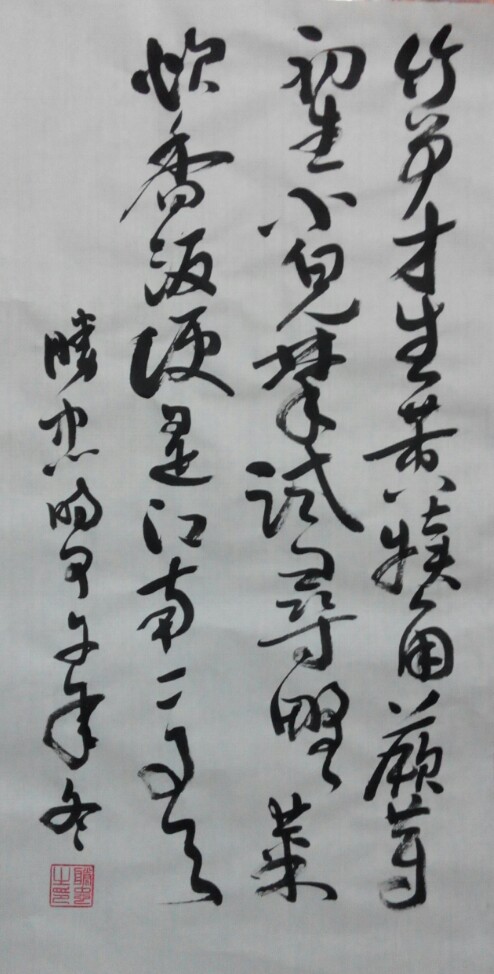 竹笋才生黄犊角蕨芽
初生小兒拳试尋野菜
炊香饭便是江南二月天
勝忠时甲午年冬